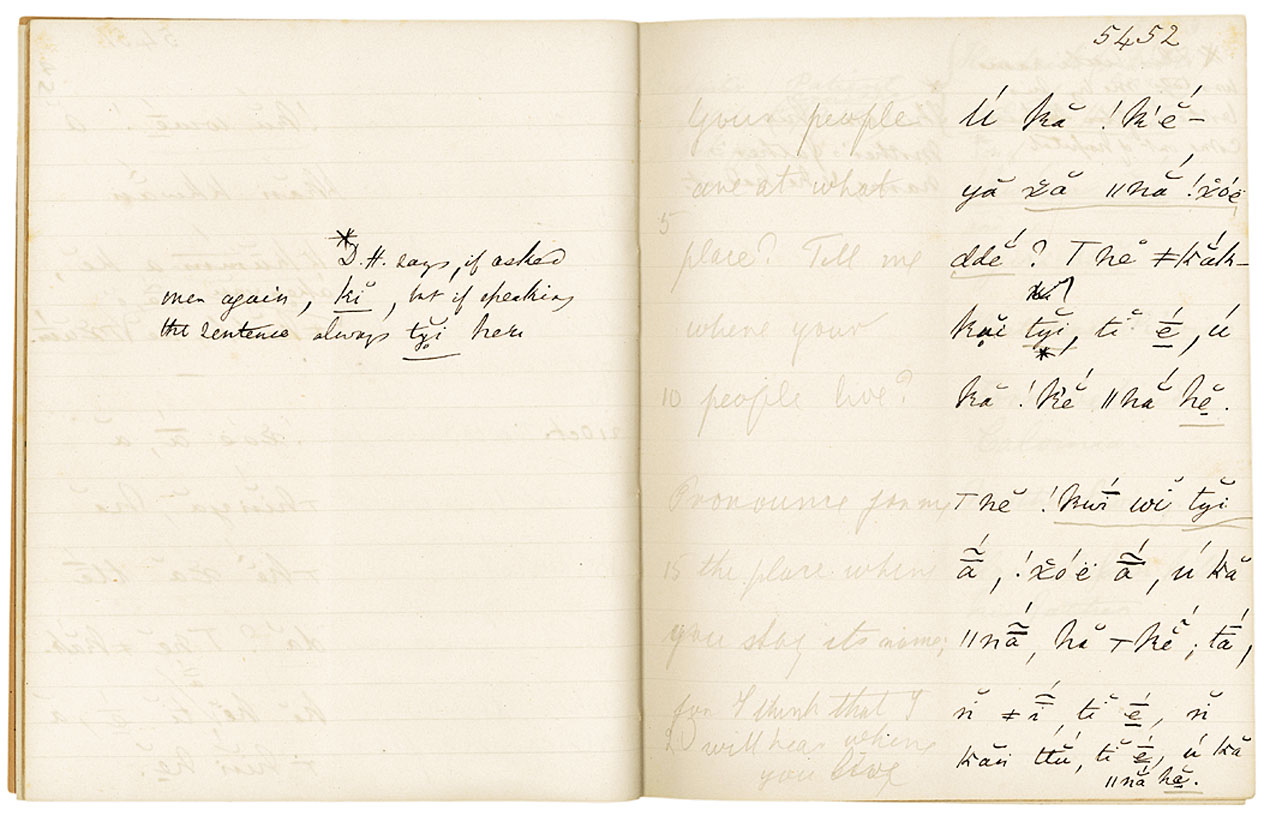 *D.H. says, if asked
men again, kĭ, but if speaking
the sentence always tỵ̆i here
5452
Your people
are at what
5
place? Tell me
where your
10 people live?
Pronounce for me
15 the place where
you stay its name;
for I think that I
20 will hear where
you live
ú kă !k'ĕ́–
yă x̌ă ǁnắ !x̌óë
ddĕ́? T nĕ ǂkắk–
kặi tỵ̆i, tĭ é̱, ú
*
kă !kĕ́ ǁnắ hĕ̱.
T nĕ !kwī́ wĭ tỵ̆i
ā̃́, !x̌óë ā̃́, ú kă
ǁnā̃́, hă T kĕ́; tā́,
ñ̆ ǂ ī̃́, tĭ é̱, ñ̆
kăŭ ttŭ́, tĭ é̱, ú kă
ǁnắ hĕ̱.